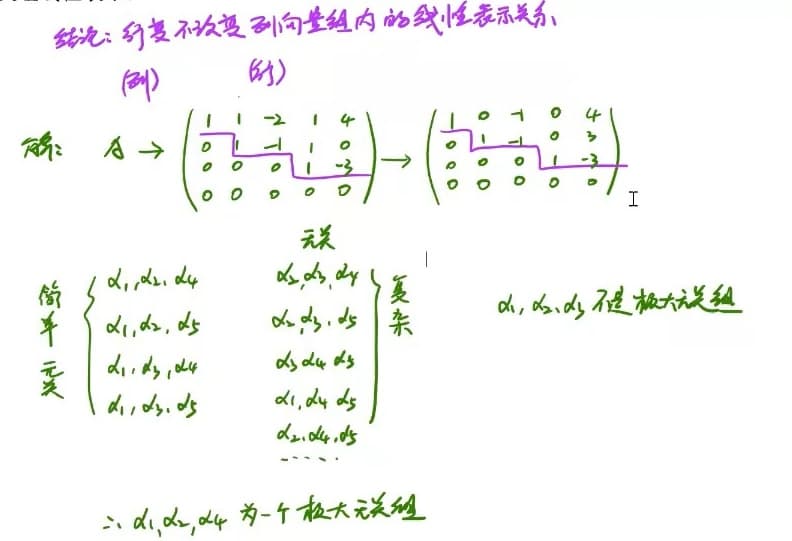 结论:行变不改变列向量组内的线性表示关系
(列) (行)
解: A → ( 1 1 -2 1 4 ) → ( 1 0 -1 0 4 )
0 1 -1 1 0 0 1 -1 0 3
0 0 0 1 -3 0 0 0 1 -3
0 0 0 0 0 0 0 0 0 0
无关
简单无关
α1,α2.α4
α1,α2,α5
α1.α3,α4
α1,α3.α5
α2,α3,α4
α2,α3.α5
α3 α4 α5
α1,α4 α5
α2.α4.α5
.....
复杂
α1,α2,α3不是极大无关组
∴ α1,α2,α4 为一个极大无关组